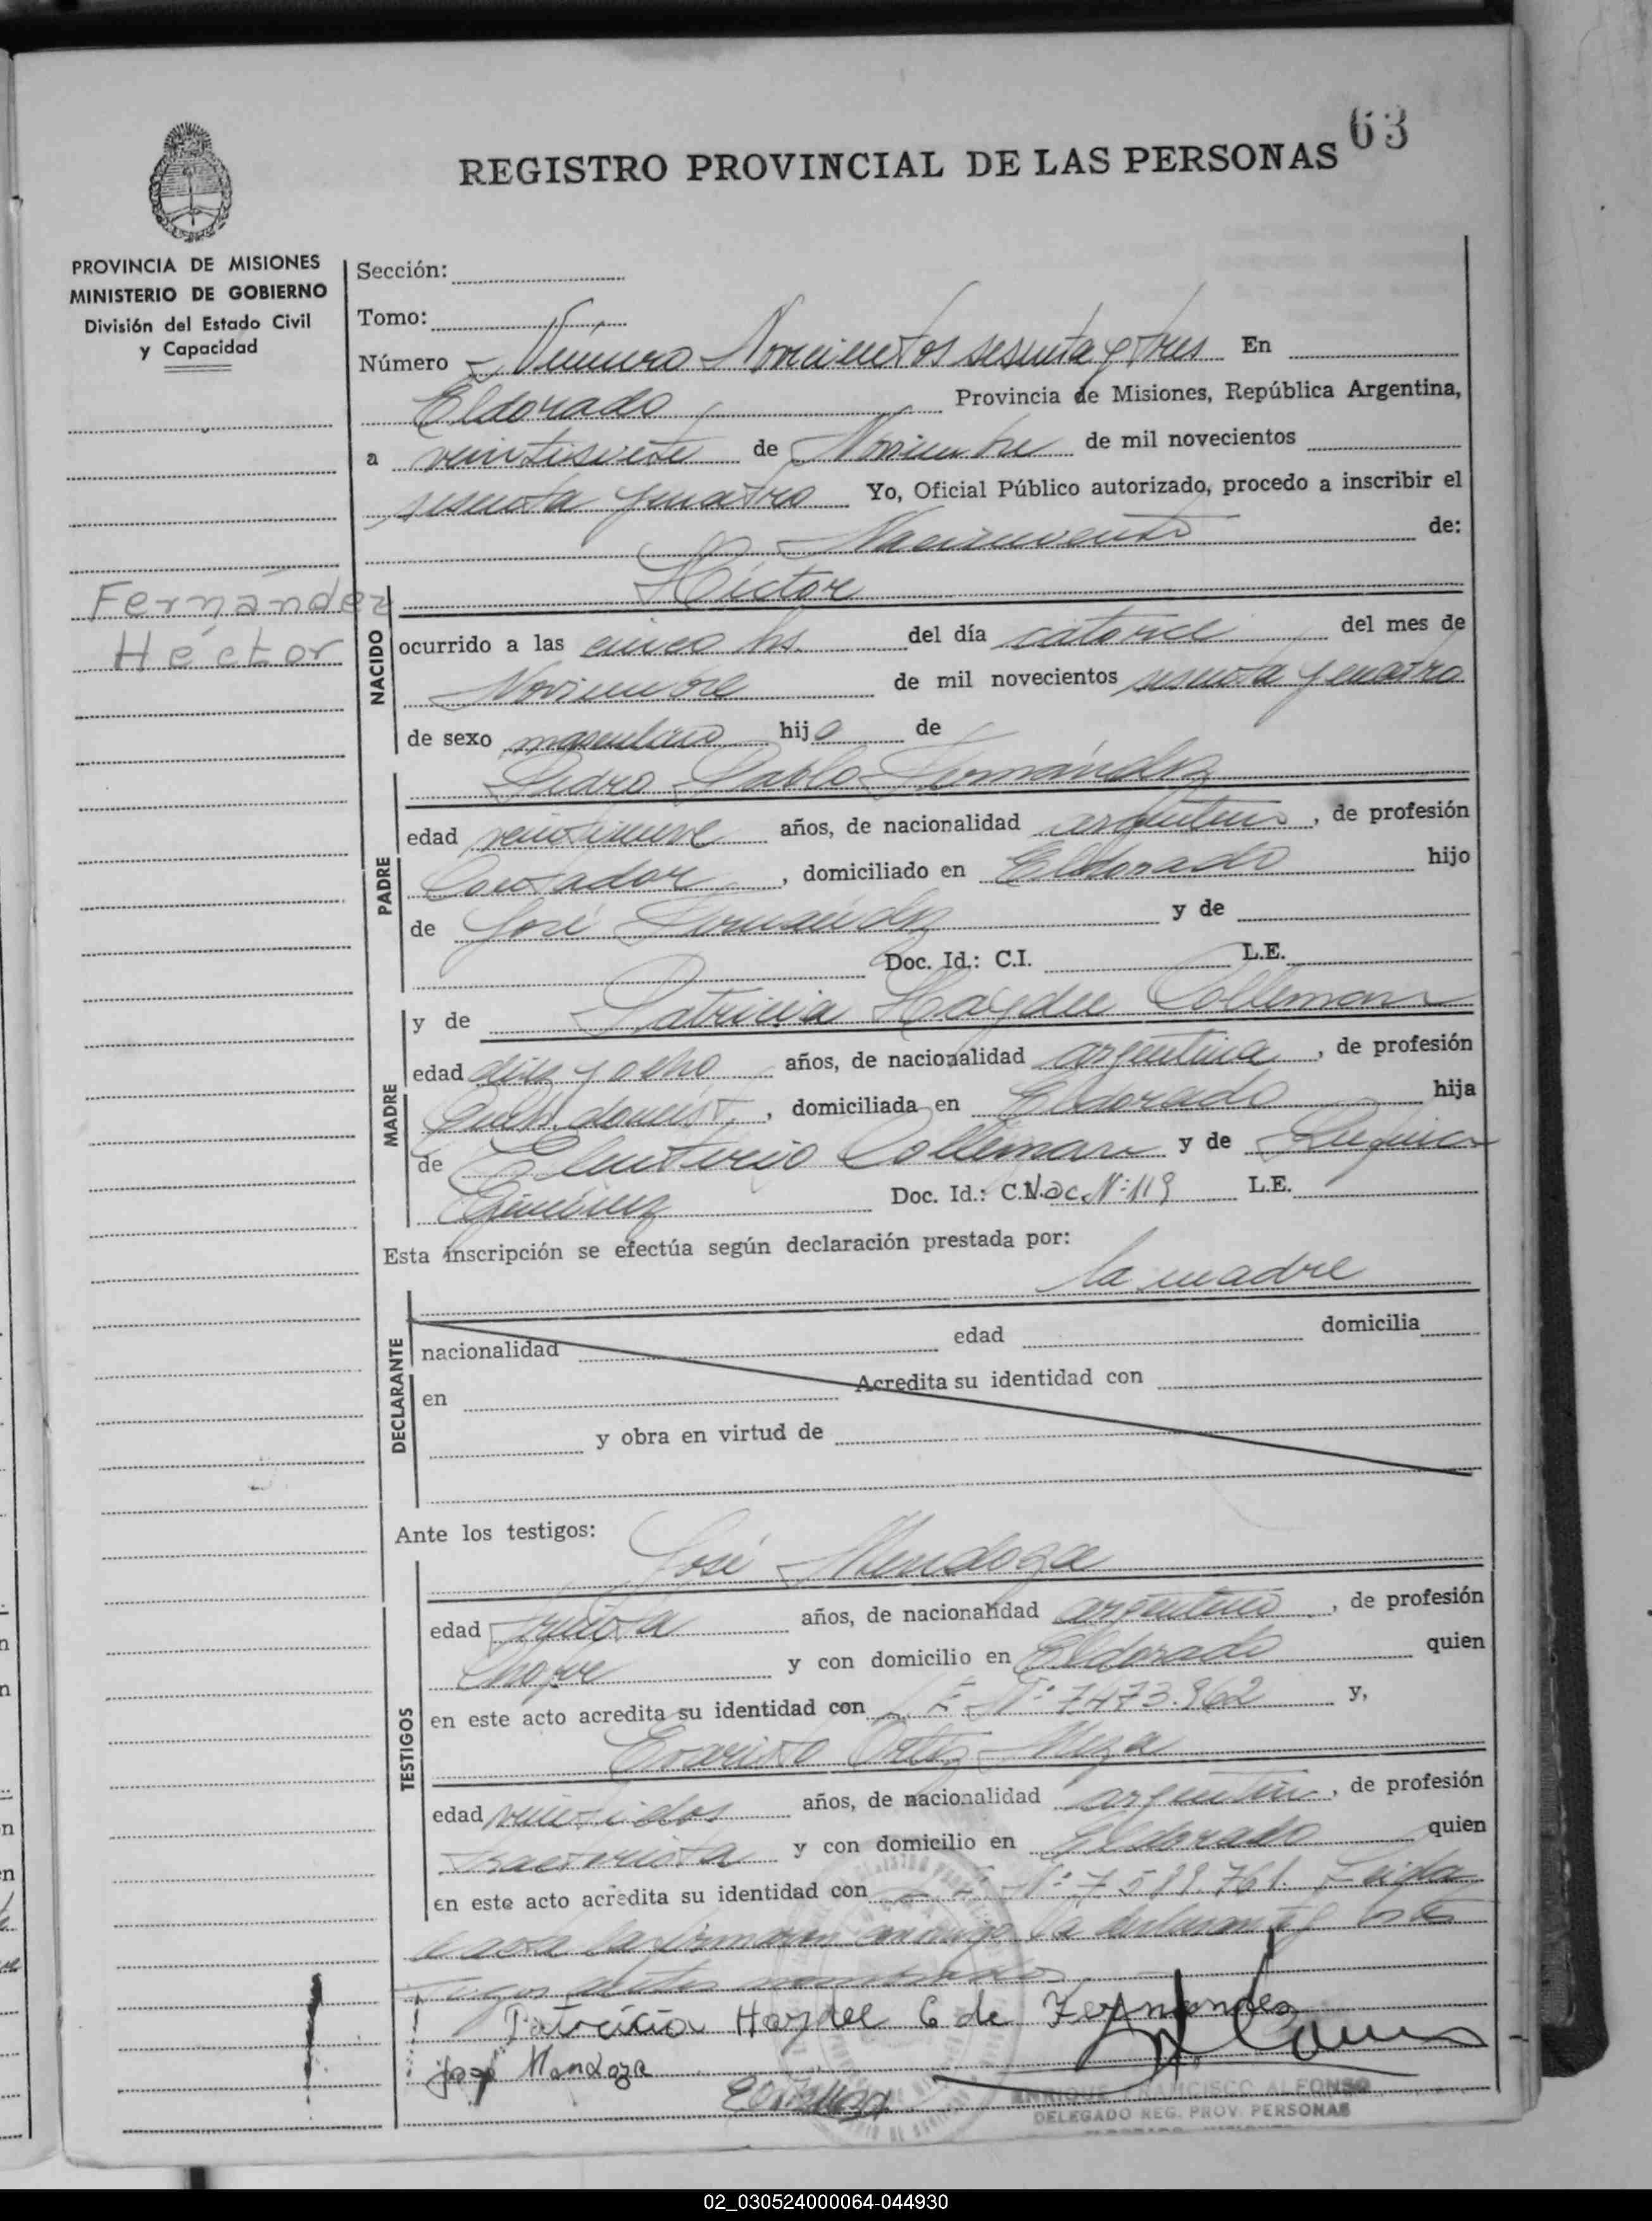 63
REGISTRO PROVINCIAL DE LAS PERSONAS
PROVINCIA DE MISIONES
MINISTERIO DE GOBIERNO
División del Estado Civil
y Capacidad
Fernández
Héctor
Sección:
Tomo:
Número Número Novecientos sesenta y tres En
Eldorado Provincia de Misiones, República Argentina,
a veintisiete de Noviembre de mil novecientos
sesenta y cuatro Yo, Oficial Público autorizado, procedo a inscribir el
Nacimiento de:
Héctor
NACIDO
ocurrido a las cinco hs. del día catorce del mes de
Noviembre de mil novecientos sesenta y cuatro
de sexo masculino hijo de
Pedro Pablo Fernández
PADRE
edad veintinueve años, de nacionalidad argentino, de profesión
Contador, domiciliado en Eldorado hijo
de José Fernández y de
Doc. Id.: C.I. L.E.
MADRE
y de Patricia Haydee Colleman
edad diez y ocho años, de nacionalidad argentina, de profesión
Queh. domést., domiciliada en Eldorado hija
de Eleuterio Colleman y de Rufina
Giménez Doc. Id.: C.Nac. Nº 119 L.E.
Esta inscripción se efectúa según declaración prestada por:
la madre
DECLARANTE
nacionalidad edad domicilia
en Acredita su identidad con
y obra en virtud de
Ante los testigos:
José Mendoza
TESTIGOS
edad treinta años, de nacionalidad argentino, de profesión
Chofer y con domicilio en Eldorado quien
en este acto acredita su identidad con L E Nº 7473.962 y,
Evaristo Ortiz Meza
edad veintidos años, de nacionalidad argentin, de profesión
Tractorista y con domicilio en Eldorado quien
en este acto acredita su identidad con L E Nº 7 589.761. Leida
el acta la firmaron conmigo la declarante y los tes
tigos antes nombrados
Patricia Haydee C de Fernandez
José Mendoza
ENRIQUE FRANCISCO ALFONSO
DELEGADO REG. PROV. PERSONAS
02_030524000064-044930